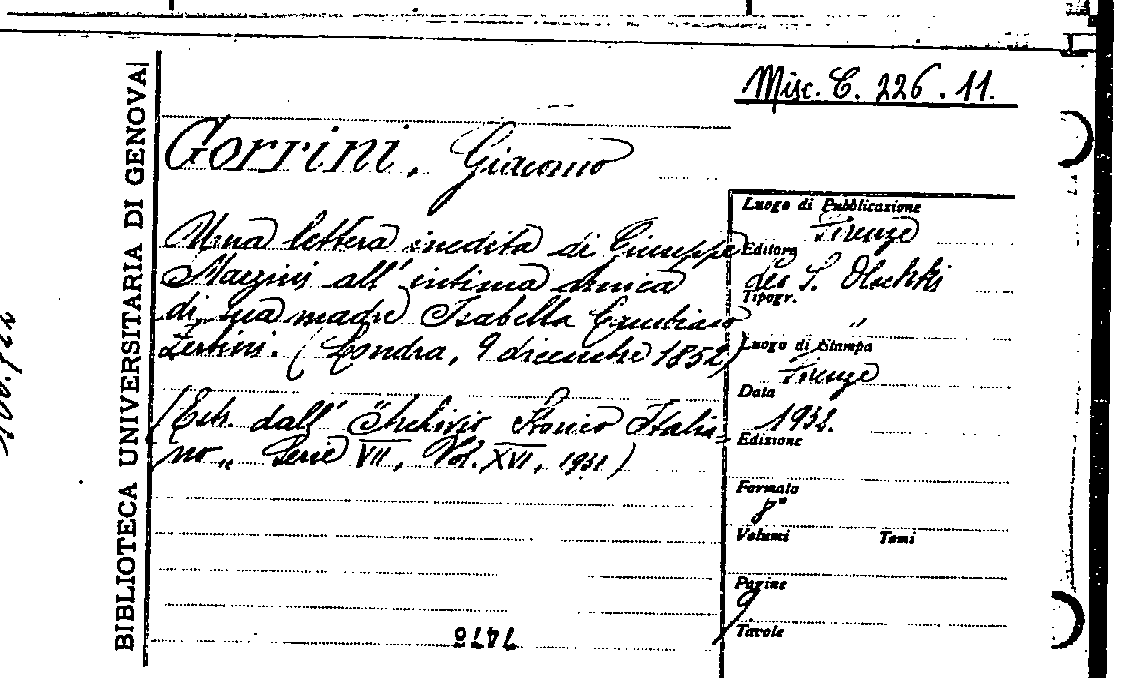 Misc. C. 226.11.
BIBLIOTECA UNIVERSITARIA DI GENOVA
Gorrini, Giacomo
Una lettera inedita di Giuseppe
Mazzini all'intima amica
di sua madre Isabella
Zerbini. (Londra, 9 dicembre 1852)
(Estr. dall' "Archivio Storico Italia=
no„ Serie VII, Vol. XVI, 1931)
Luogo di Pubblicazione
Firenze
Editore
Leo S. Olschki
Tipogr.
"
Luogo di Stampa
Firenze
Data
1932.
Edizione
Formato
8°
Volumi Tomi
Pagine
9
Tavole